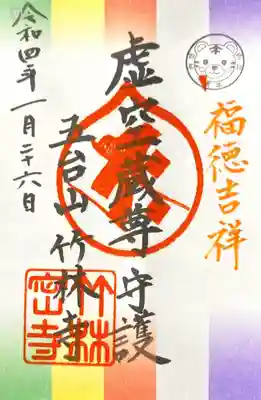 福徳吉祥
虚空蔵尊 守護
五台山 竹林寺
令和四年 一月二十六日
竹林
密寺